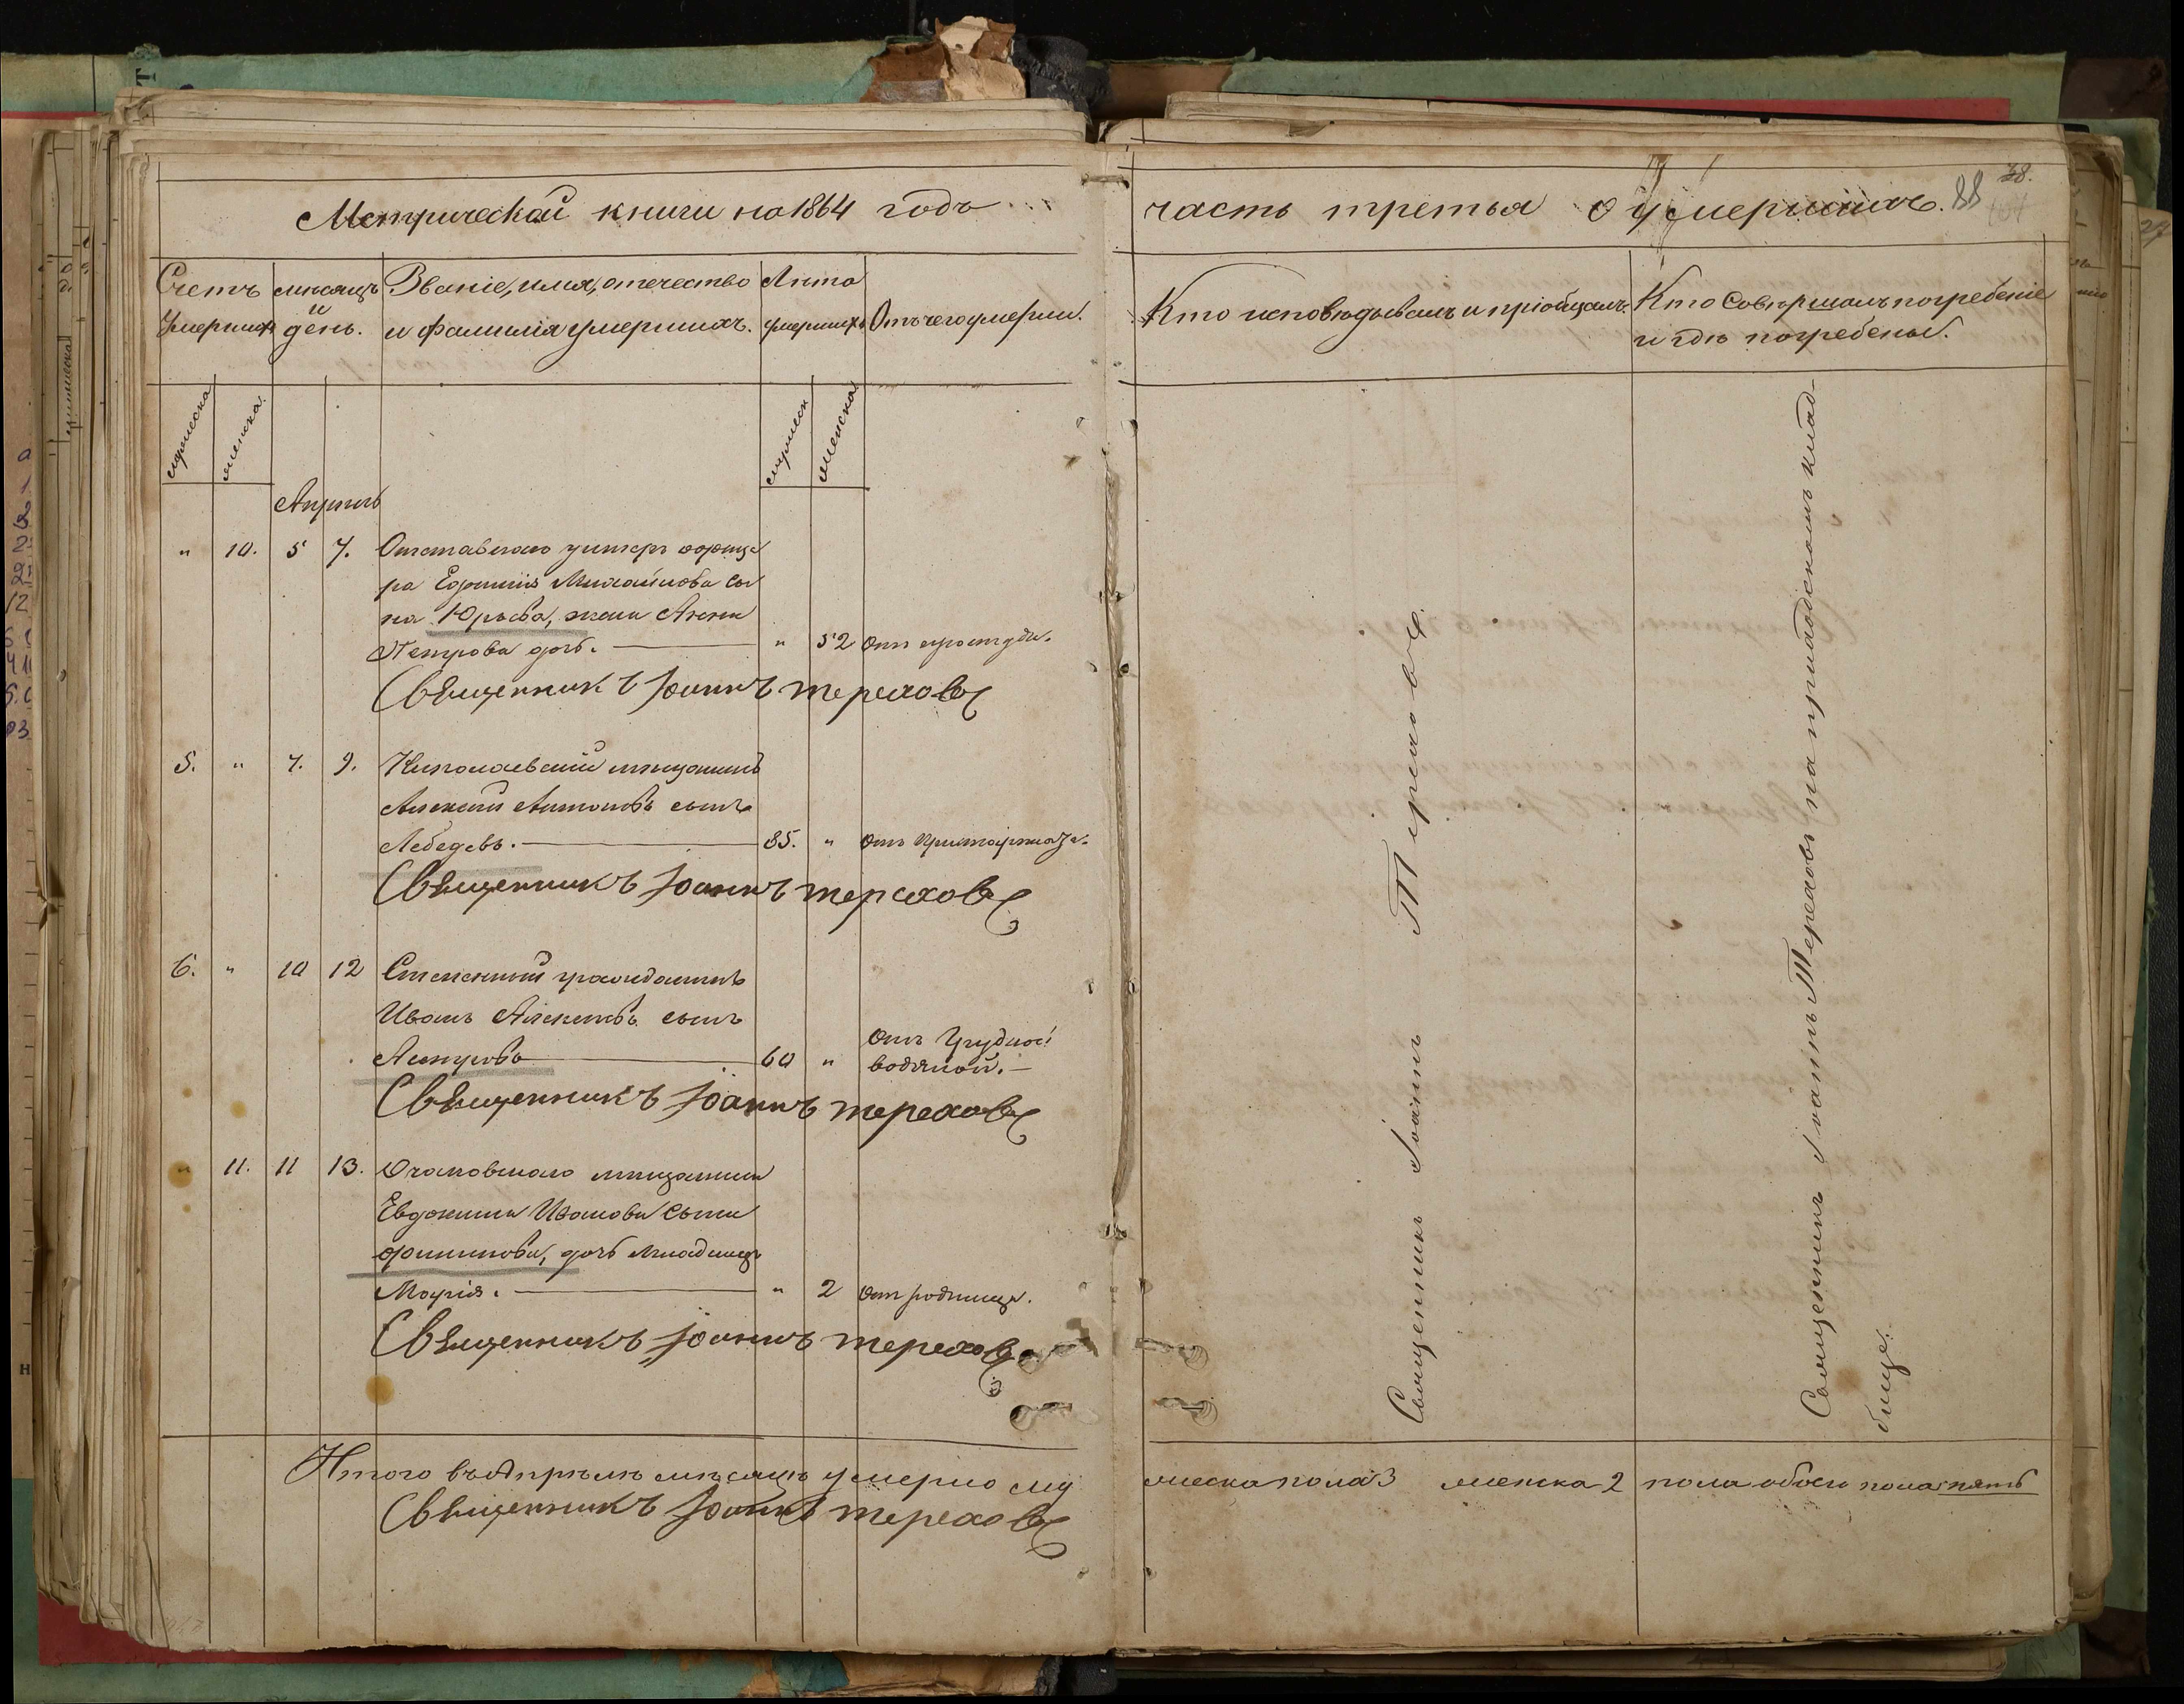 Метрической книги на 1864 годъ
часть третья о умершихъ. 88
78.
Счетъ умершихъ
мѣсяцъ и день.
Званіе, имя, отечество
и фамилія умершихъ.
Лѣта умершихъ
Отъ чего умерли.
Кто исповѣдывалъ и пріобщалъ.
Кто совершалъ погребеніе
и гдѣ погребены.
мужеска
женска.
мужеск
женска
Апрѣль
" 10. 5 7. Отставнаго унтеръ офице
ра Ефимія Михайлова сы
на Юрьева, жена Анна
Петрова дочь. " 52 Отъ простуды.
Священникъ Іоаннъ Тереховъ
5. " 7. 9. Николаевскій мѣщанинъ
Алексій Антоновъ сынъ
Лебедевъ. 85. " Отъ
Священникъ Іоаннъ Тереховъ
6. " 10 12 гражданинъ
Иванъ Алексѣевъ сынъ
60 " Отъ Грудной
водяной.
Священникъ Іоаннъ Тереховъ
" 11. 11 13. Очаковскаго мѣщанина
Евдокима Иванова сына
Филипова, дочь младенецъ
Марія. " 2 Отъ родимца.
Священникъ Іоаннъ Тереховъ
Священникъ Іоаннъ Тереховъ
Священникъ Іоаннъ Тереховъ на приходскомъ клад-
бище.
Итого въ Апрѣлѣ мѣсяцѣ умерло му
жеска пола 3 женска 2 пола обоего пола пять
Священникъ Іоаннъ Тереховъ